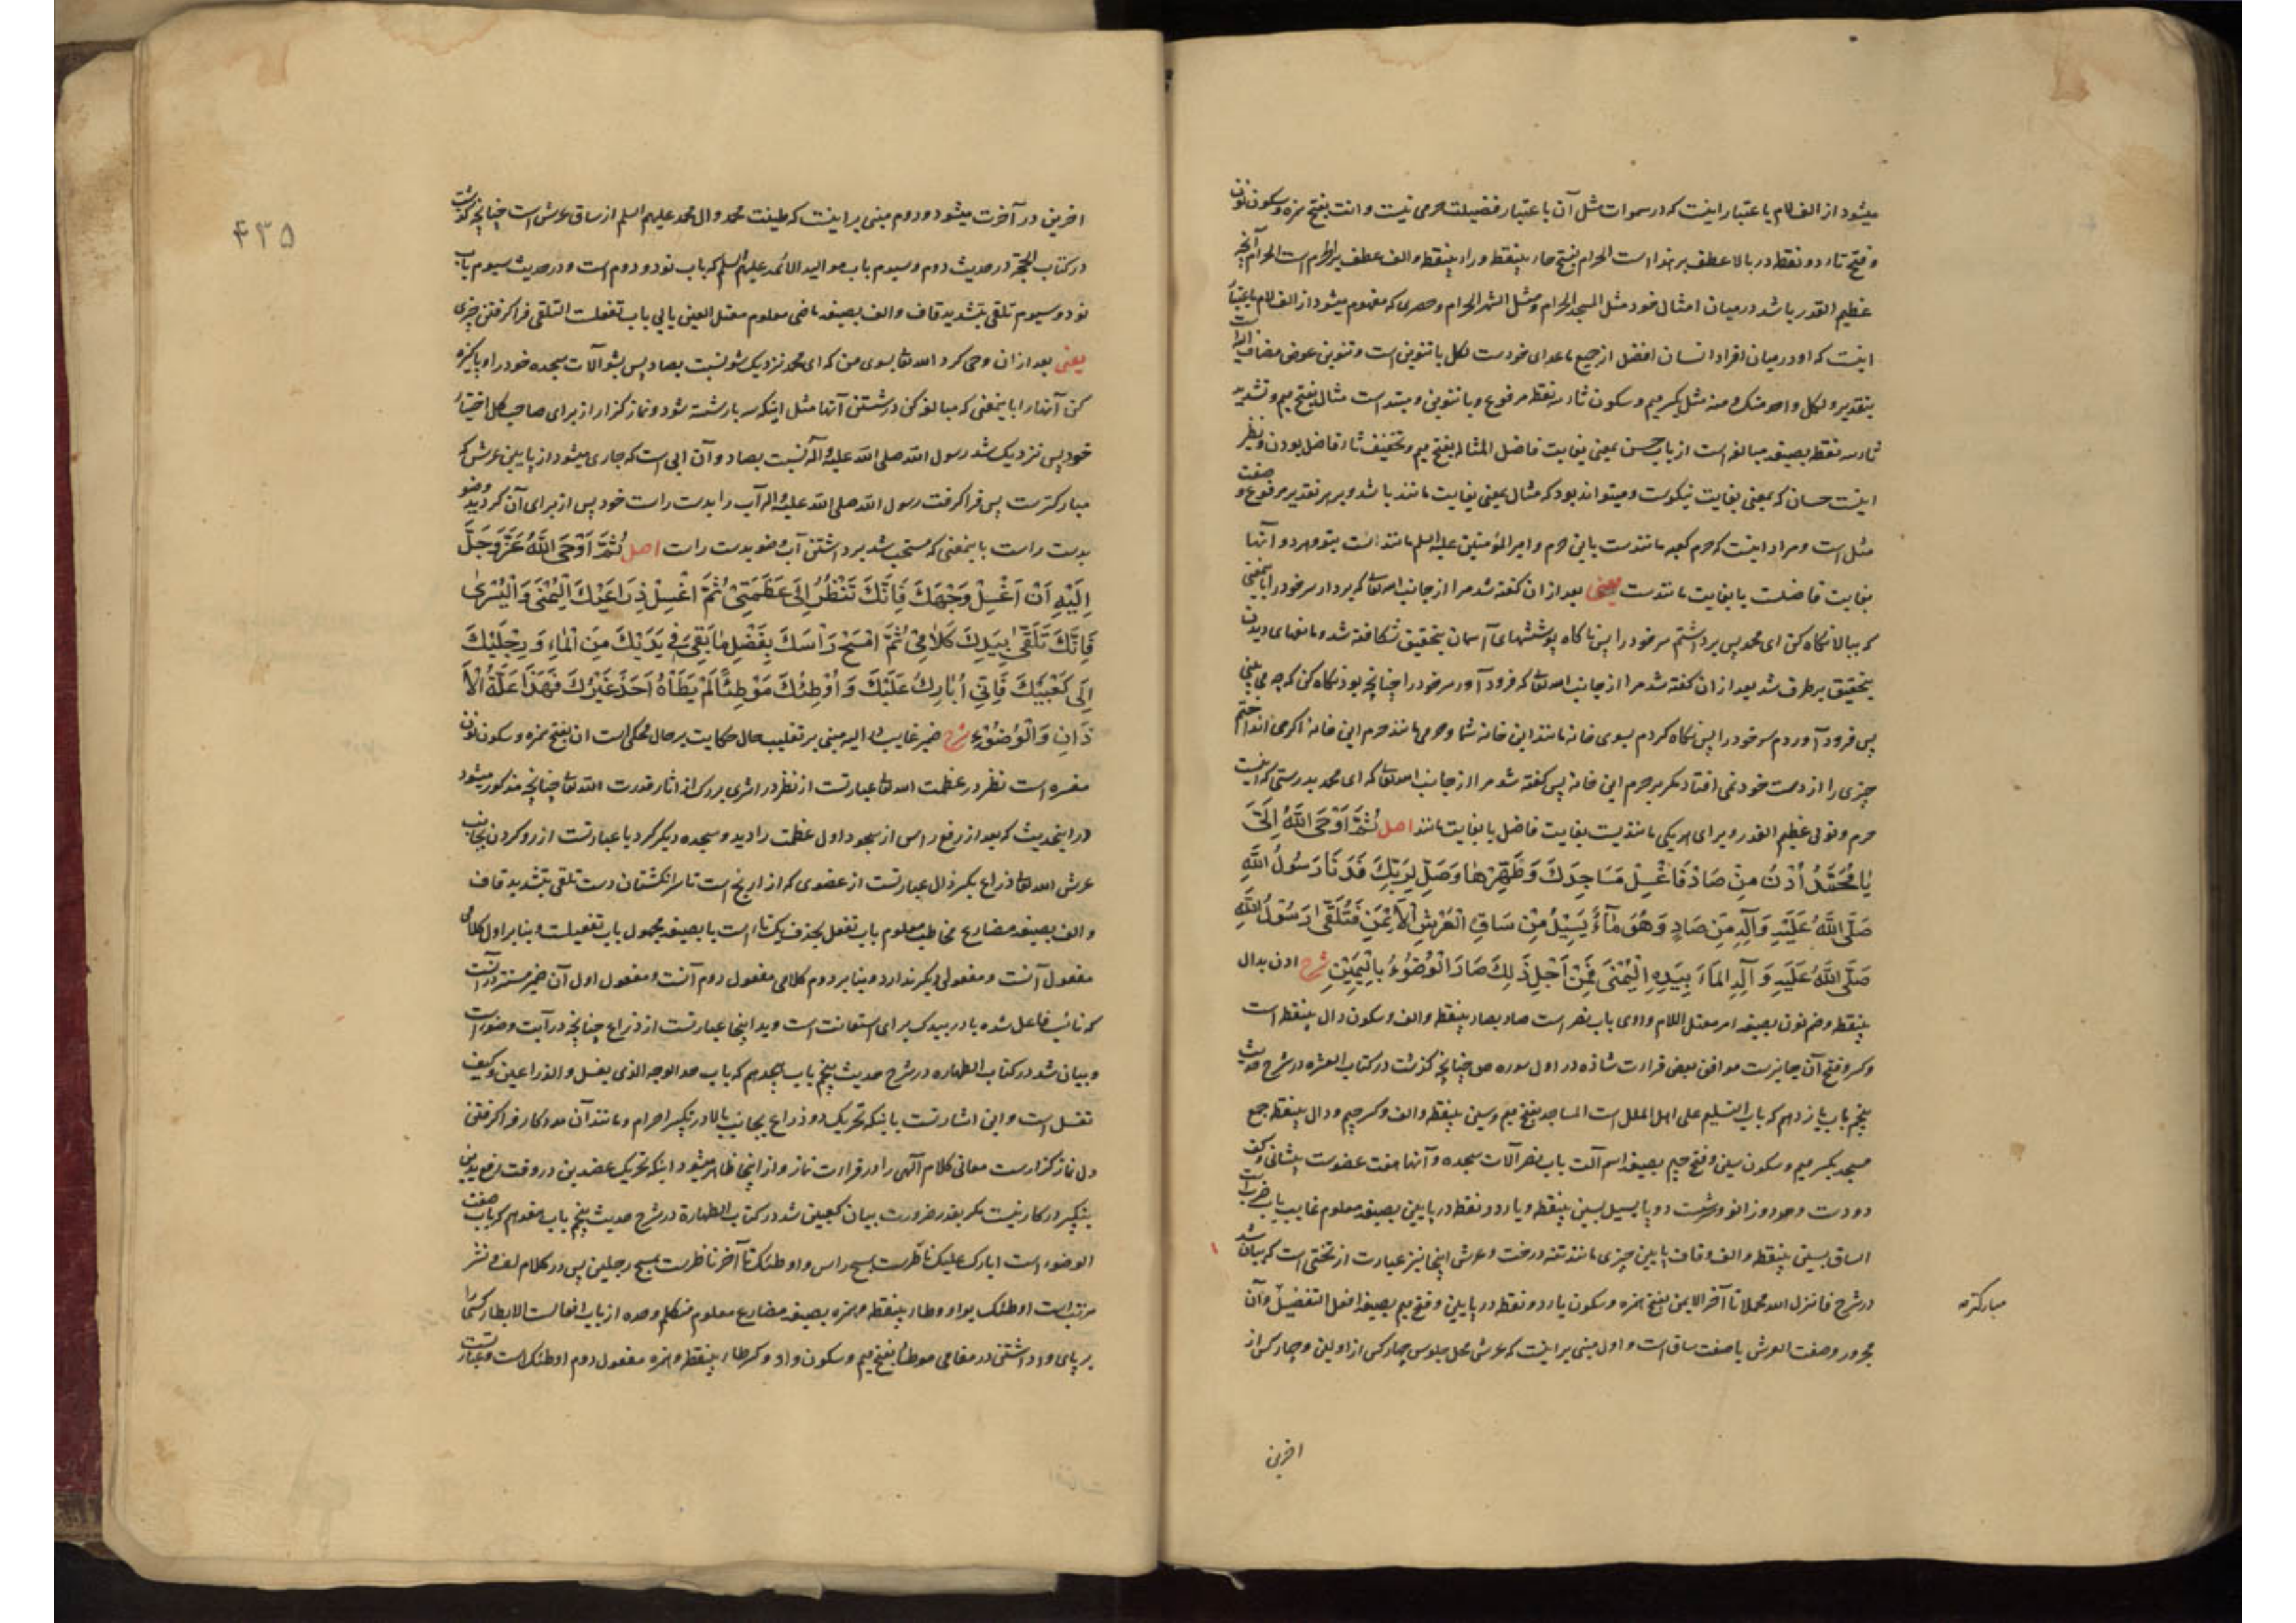 میشود از الف لام باعتبار اینست که در سموات مثل آن باعتبار فضیلت حرمی نیست و انت بفتح همزه و سکون نون
و فتح تاء دو نقطه در بالا عطف بر هذا است الحرام بفتح حاء بینقطه و راء بینقطه و الف عطف بر الحرم است الحرام آنچه
عظیم القدر باشد در میان امثال خود مثل المسجد الحرام و مثل الشهر الحرام و حصری که مفهوم میشود از الف لام باعتبار
اینست که او در میان افراد انسان افضل از جمیع ماعدای خودست لکل با تنوین است و تنوین عوض مضاف الیه است
بتقدیر و لکل واحد منک و منه مثل بکسر میم و سکون ثاء سه نقطه مرفوع و با تنوین و مبتداست مثال بفتح میم و تشدید
ثاء سه نقطه بصیغه مبالغه است از باب حسن بمعنی بغایت فاضل المثاله بفتح میم و تخفیف ثاء فاضل بودن و نظیر
اینست حسان که بمعنی بغایت نیکوست و میتواند بود که مثال بمعنی بغایت مانند باشد و بر هر تقدیر مرفوع و صفت
مثل است و مراد اینست که حرم کعبه مانندست باین حرم و امیر المؤمنین علیه السلم مانند است بتو و هر دو آنها
بغایت فاضلست یا بغایت مانندست یعنی بعد از ان گفته شد مرا از جانب الله تعالی که بردار سر خود را باینمعنی
که ببالا نگاه کن ای محمد پس برداشتم سر خود را پس ناگاه پوششهای آسمان بتحقیق شکافته شد و مانعهای دیدن
بتحقیق برطرف شد بعد از ان گفته شد مرا از جانب الله تعالی که فرود آور سر خود را چنانچه بود نگاه کن که چه می بینی
پس فرود آوردم سر خود را پس نگاه کردم بسوی خانه مانند این خانه شما و حرمی مانند حرم این خانه اگر می انداختم
چیزی را از دست خود نمی افتاد مگر بر حرم این خانه پس گفته شد مرا از جانب الله تعالی که ای محمد بدرستی که اینست
حرم و توئی عظیم القدر و برای هر یکی مانندیست بغایت فاضل یا بغایت مانند اصل ثُمَّ أَوْحَى اللَّهُ إِلَيَّ
يَا مُحَمَّدُ ادْنُ مِنْ صَادٍ فَاغْسِلْ مَسَاجِدَكَ وَطَهِّرْهَا وَصَلِّ لِرَبِّكَ فَدَنَا رَسُولُ اللَّهِ
صَلَّى اللَّهُ عَلَيْهِ وَآلِهِ مِنْ صَادٍ وَهُوَ مَاءٌ يَسِيلُ مِنْ سَاقِ الْعَرْشِ الْأَيْمَنِ فَتَلَقَّى رَسُولُ اللَّهِ
صَلَّى اللَّهُ عَلَيْهِ وَآلِهِ الْمَاءَ بِيَدِهِ الْيُمْنَى فَمِنْ أَجْلِ ذَلِكَ صَارَ الْوُضُوءُ بِالْيَمِينِ شرح ادن بدال
بینقطه و ضم نون بصیغه امر معتل اللام واوی باب نصر است صاد بصاد بینقطه و الف و سکون دال بینقطه است
و کسر و فتح آن جایزست موافق بعض قراءت شاذه در اول سوره ص چنانچه گذشت در کتاب العشره در شرح حدیث
پنجم باب یازدهم که باب التسلیم علی اهل الملل است المساجد بفتح میم و سین بینقطه و الف و کسر جیم و دال بینقطه جمع
مسجد بکسر میم و سکون سین و فتح جیم بصیغه اسم آلت باب نصر آلات سجده و آنها هفت عضوست پیشانی و کف
دو دست و دو زانو و سر شست دو پا یسیل بسین بینقطه و یاء دو نقطه در پایین بصیغه معلوم غایب باب ضرب است
الساق بسین بینقطه و الف و قاف پایین چیزی مانند تنه درخت و عرش اینجا نیز عبارت از تختی است که بیان شد
در شرح فانزل الله محملا تا آخر الایمن بفتح همزه و سکون یاء دو نقطه در پایین و فتح میم بصیغه افعل التفضیل و آن
مبارکتر
مجرور و صفت العرش یا صفت ساق است و اول مبنی بر اینست که عرش محل جلوس چهار کس از اولین و چهار کس از
اخرین
۴۳۵
اخرین در آخرت میشود و دوم مبنی بر اینست که طینت محمد و ال محمد علیهم السلم از ساق عرش است چنانچه گذشت
در کتاب الحجة در حدیث دوم و سیوم باب موالید الائمه علیهم السلم که باب نود و دوم است و در حدیث سیوم باب
نود و سیوم تلقی بتشدید قاف و الف بصیغه ماضی معلوم معتل العین یائی باب تفعلت التلقی فرا گرفتن چیزی
یعنی بعد از ان وحی کرد الله تعالی بسوی من که ای محمد نزدیک شو نسبت بصاد پس بشو آلات سجده خود را و پاکیزه
کن آنها را باینمعنی که مبالغه کن در شستن آنها مثل اینکه سه بار شسته شود و نماز گزار از برای صاحب کل اختیار
خود پس نزدیک شد رسول الله صلی الله علیه و آله نسبت بصاد و آن ابی است که جاری میشود از پایین عرش که
مبارکترست پس فرا گرفت رسول الله صلی الله علیه و اله آب را بدست راست خود پس از برای آن گردید وضو
بدست راست باینمعنی که مستحب شد برداشتن آب وضو بدست راست اصل ثُمَّ أَوْحَى اللَّهُ عَزَّ وَجَلَّ
إِلَيْهِ أَنِ اغْسِلْ وَجْهَكَ فَإِنَّكَ تَنْظُرُ إِلَى عَظَمَتِي ثُمَّ اغْسِلْ ذِرَاعَيْكَ الْيُمْنَى وَالْيُسْرَى
فَإِنَّكَ تَلَقَّى بِيَدِكَ كَلَامِي ثُمَّ امْسَحْ رَأْسَكَ بِفَضْلِ مَا بَقِيَ فِي يَدَيْكَ مِنَ الْمَاءِ وَرِجْلَيْكَ
إِلَى كَعْبَيْكَ فَإِنِّي أُبَارِكُ عَلَيْكَ وَأُوطِئُكَ مَوْطِئًا لَمْ يَطَأْهُ أَحَدٌ غَيْرُكَ فَهَذَا عِلَّةُ الْأَ
ذَانِ وَالْوُضُوءِ شرح ضمیر غایب در الیه مبنی بر تغلیب حال حکایت بر حال محکی است ان بفتح همزه و سکون نون
مفسره است نظر در عظمت الله تعالی عبارتست از نظر در اثری بزرگ از اثار قدرت الله تعالی چنانچه مذکور میشود
در اینحدیث که بعد از رفع راس از سجود اول عظمت را دید و سجده دیگر کرد یا عبارتست از رو کردن بجانب
عرش الله تعالی ذراع بکسر ذال عبارتست از عضوی که از ارنج است تا سر انگشتان دست تلقی بتشدید قاف
و الف بصیغه مضارع مخاطب معلوم باب تفعل بحذف یک تاء است یا بصیغه مجهول باب تفعیلست و بنابر اول کلامی
مفعول آنست و مفعولی دیگر ندارد و بنابر دوم کلامی مفعول دوم آنست و مفعول اول آن ضمیر مستتر در آنست
که نائب فاعل شده باء در بیدک برای استعانت است و ید اینجا عبارتست از ذراع چنانچه در آیت وضو است
و بیان شد در کتاب الطهاره در شرح حدیث پنجم باب هیجدهم که باب حد الوجه الذی یغسل و الذراعین و کیف
تغسل است و این اشارتست باینکه تحریک دو ذراع بجانب بالا در تکبیر احرام و مانند آن مددکار فرا گرفتن
دل نماز گزارست معانی کلام الهی را در قراءت نماز و از اینجا ظاهر میشود اینکه تحریک عضدین در وقت رفع یدین
بتکبیر در کار نیست مگر بقدر ضرورت بیان کعبین شد در کتاب الطهارة در شرح حدیث پنجم باب هفدهم که باب صفت
الوضوء است ابارک علیک ناظرست بمسح راس و اوطئک تا آخر ناظرست بمسح رجلین پس در کلام لف و نشر
مرتب است اوطئک بواو و طاء بینقطه و همزه بصیغه مضارع معلوم متکلم وحده از باب افعالست الایطاء کسی را
بر پای واداشتن در مقامی موطئا بفتح میم و سکون واو و کسر طاء بینقطه و همزه مفعول دوم اوطئک است و عبارتست